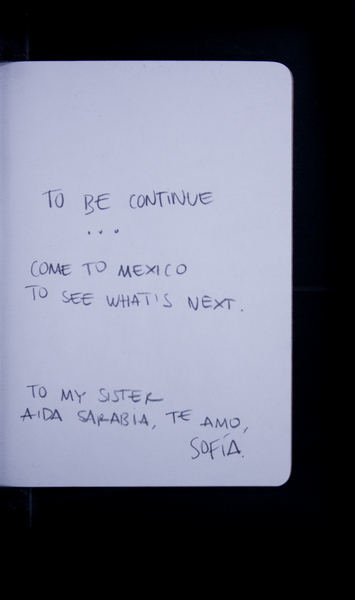 TO BE CONTINUE
...
COME TO MEXICO
TO SEE WHAT'S NEXT.
TO MY SISTER
AIDA SARABIA, TE AMO,
SOFÍA.